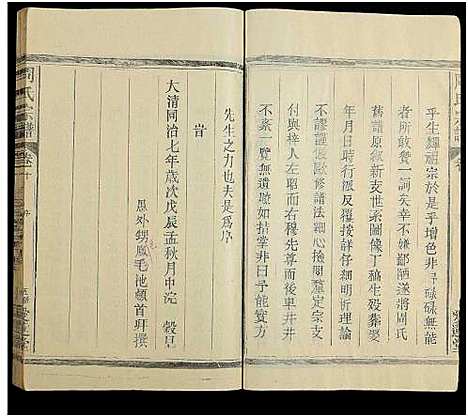 乎生輝祖宗於是乎增色非予碌碌無能
者所敢贊一詞矣幸不嫌鄙陋遂將周氏
舊譜原叙新支世系圖像丁稿生歿葬娶
年月日時行派及履按詳仔細明析理論
不謬謹倣歐修譜法細心撿閱釐定宗支
付與梓人左昭而右穆先尊而後卑井井
不紊一覽無遺嗷如指掌非曰予能實方
先生之力也夫是爲序
旹
大清同治七年歲次戊辰孟秋月中浣 穀旦
愚外甥 毛池頓首拜撰
周氏宗譜 卷